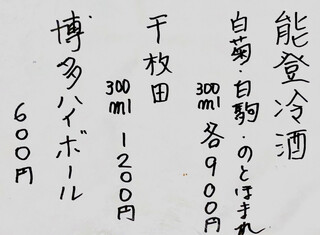 能登冷酒
白菊・白駒・のとほまれ
300ml 各900円
千枚田
300ml 1200円
博多ハイボール
600円